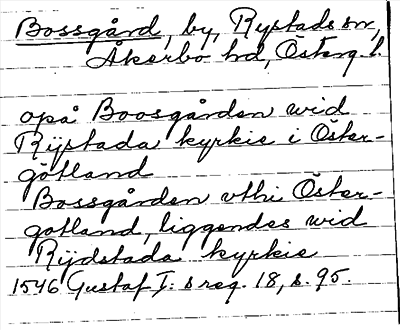 Bossgård, by, Rystads sn,
Åkerbo hd, Österg. l.
opå Boosgården wid
Rijstada kyrkie i Öster-
götland
Bossgården vthi Öster-
gotland, liggendes wid
Rijdstada kyrkie
1546 Gustaf I:s reg. 18, s. 95.